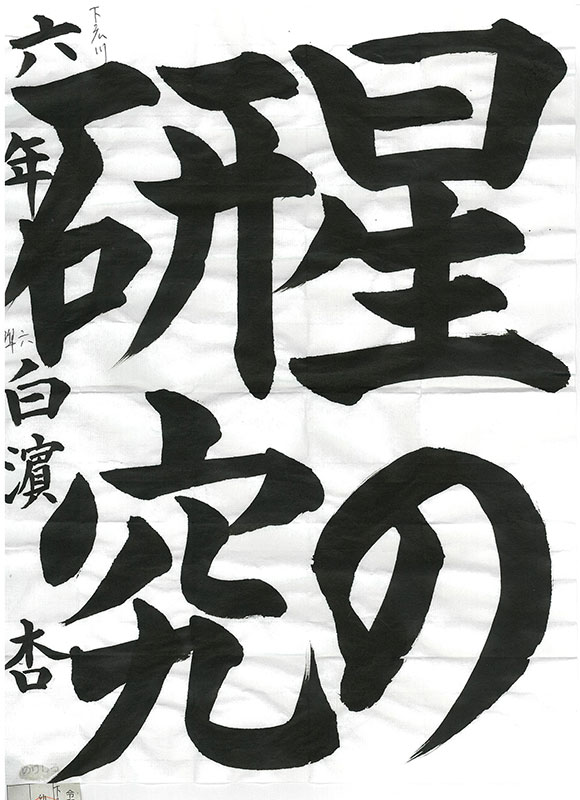 星の
研究
六年 白濱 杏
下広川
六年